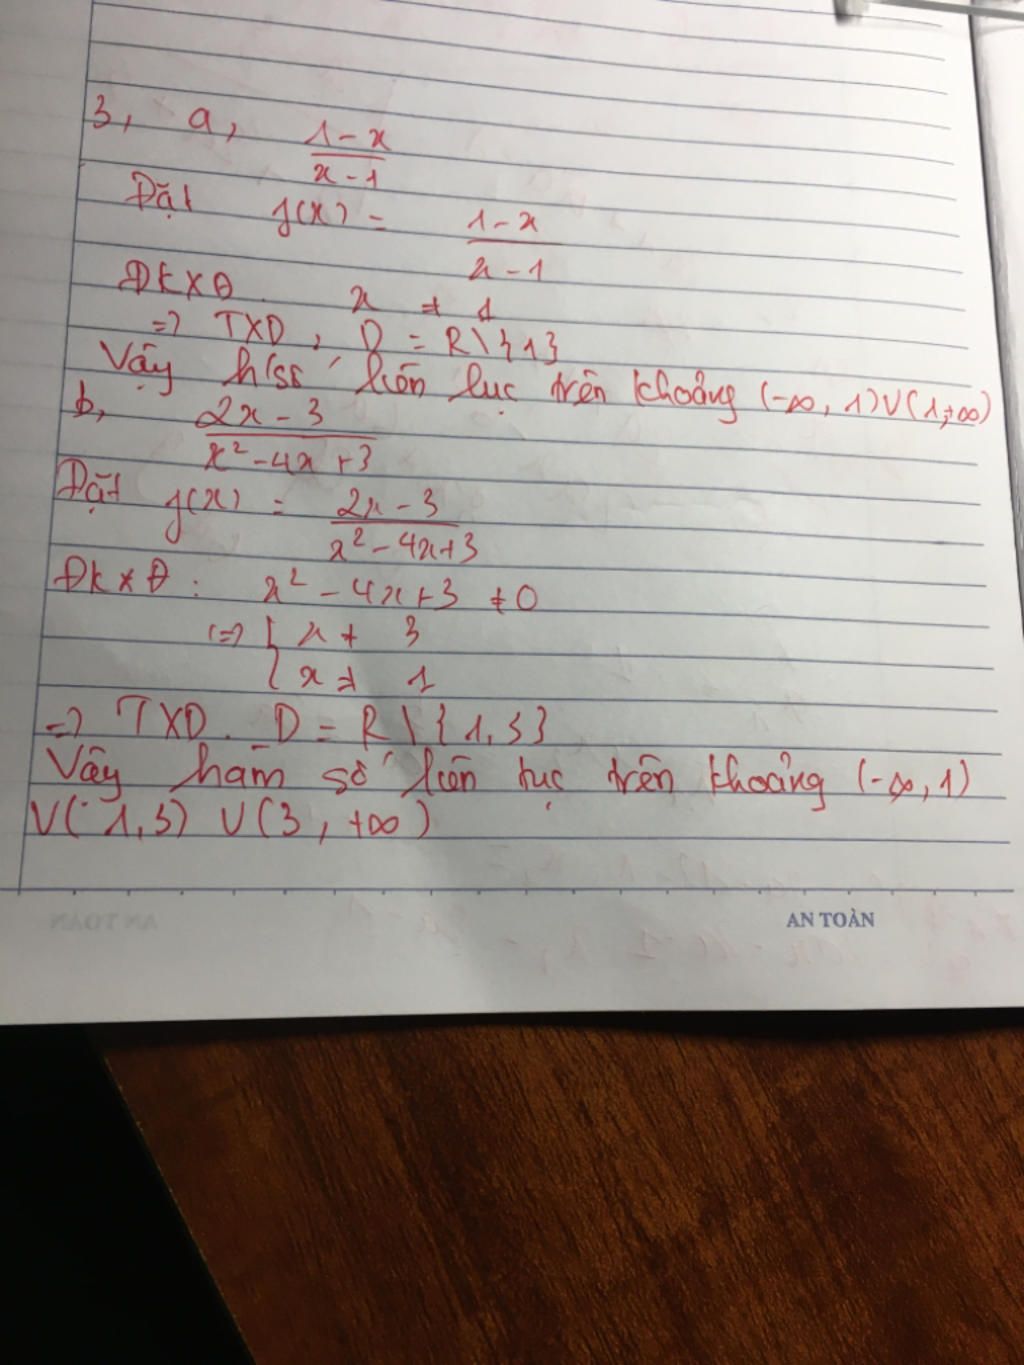 3, a, (1-x)/(x-1)
Đặt f(x) = (1-x)/(x-1)
ĐKXĐ x ≠ 1
=> TXD, D = R\{1}
Vậy h/số liên tục trên khoảng (-∞, 1)∪(1,+∞)
b, (2x-3)/(x²-4x+3)
Đặt f(x) = (2x-3)/(x²-4x+3)
ĐKXĐ: x²-4x+3 ≠0
<=> { x ≠ 3
x ≠ 1
=> TXD. D = R\{1,3}
Vậy hàm số liên tục trên khoảng (-∞,1)
∪(1,3) ∪(3, +∞)
AN TOÀN